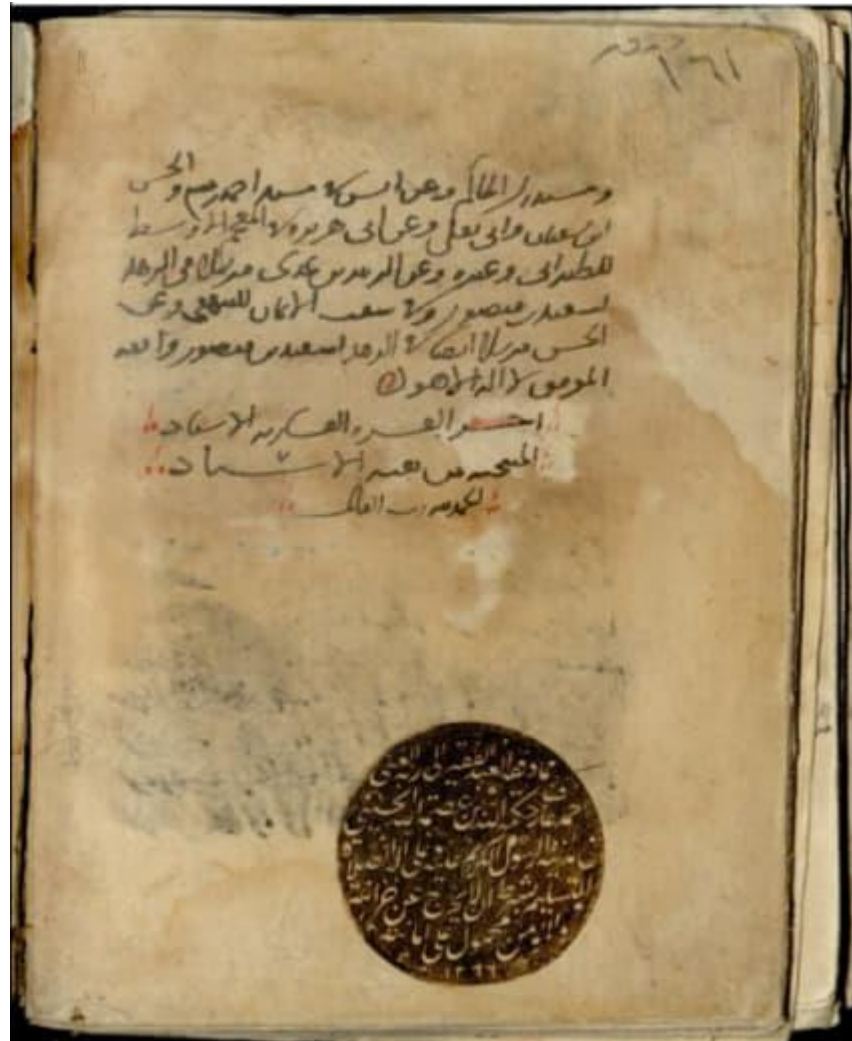 ١٦١
ومستدرك الحاكم وعن انس في مسند احمد بن منيع والحسن
ابن سفيان وابي يعلى وعن ابي هريرة في المعجم الاوسط
للطبراني وغيره وعن مرسلا في الزهد
لسعيد بن منصور وفي شعب الايمان للبيهقي وعن
الحسن مرسلا ايضا في الزهد لسعيد بن منصور والله
الموفق لا اله الا هو
اخر العشرة العشارية الاسناد
المنتخبة من بعيد الاسناد
الحمد لله رب العالمين
مما وقفه العبد الفقير الى ربه الغني
احمد عارف حكمة الله بن عصمة الله الحسيني
في مدينة الرسول الكريم عليه وعلى آله الصلاة
والتسليم بشرط ان لا يخرج عن خزانته
والمؤمن محمول على امانته
١٢٦٦